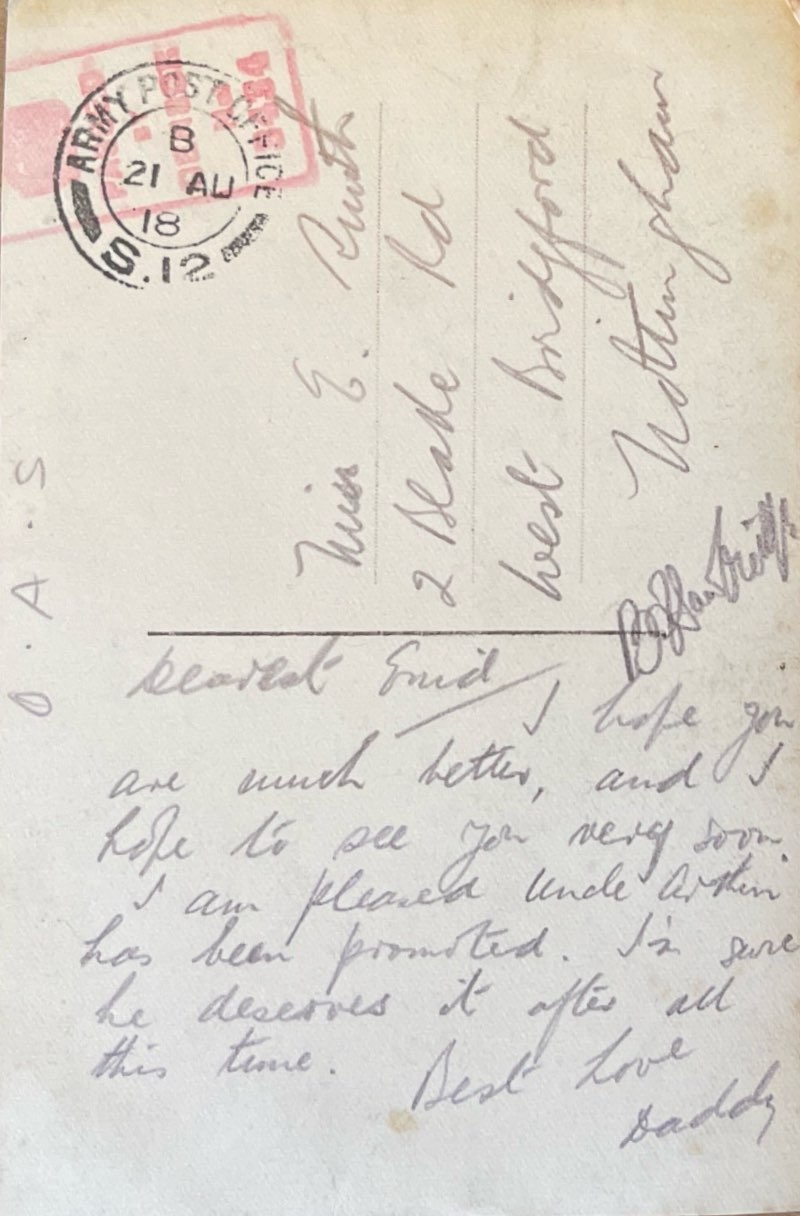 ARMY POST OFFICE
B
21 AU
18
S.12
O.A.S
Miss E. Smith
2 Blake Rd
West Bridgford
Nottingham
Dearest Enid
I hope you
are much better, and I
hope to see you very soon.
I am pleased Uncle Arthur
has been promoted. I'm sure
he deserves it after all
this time.
Best Love
Daddy